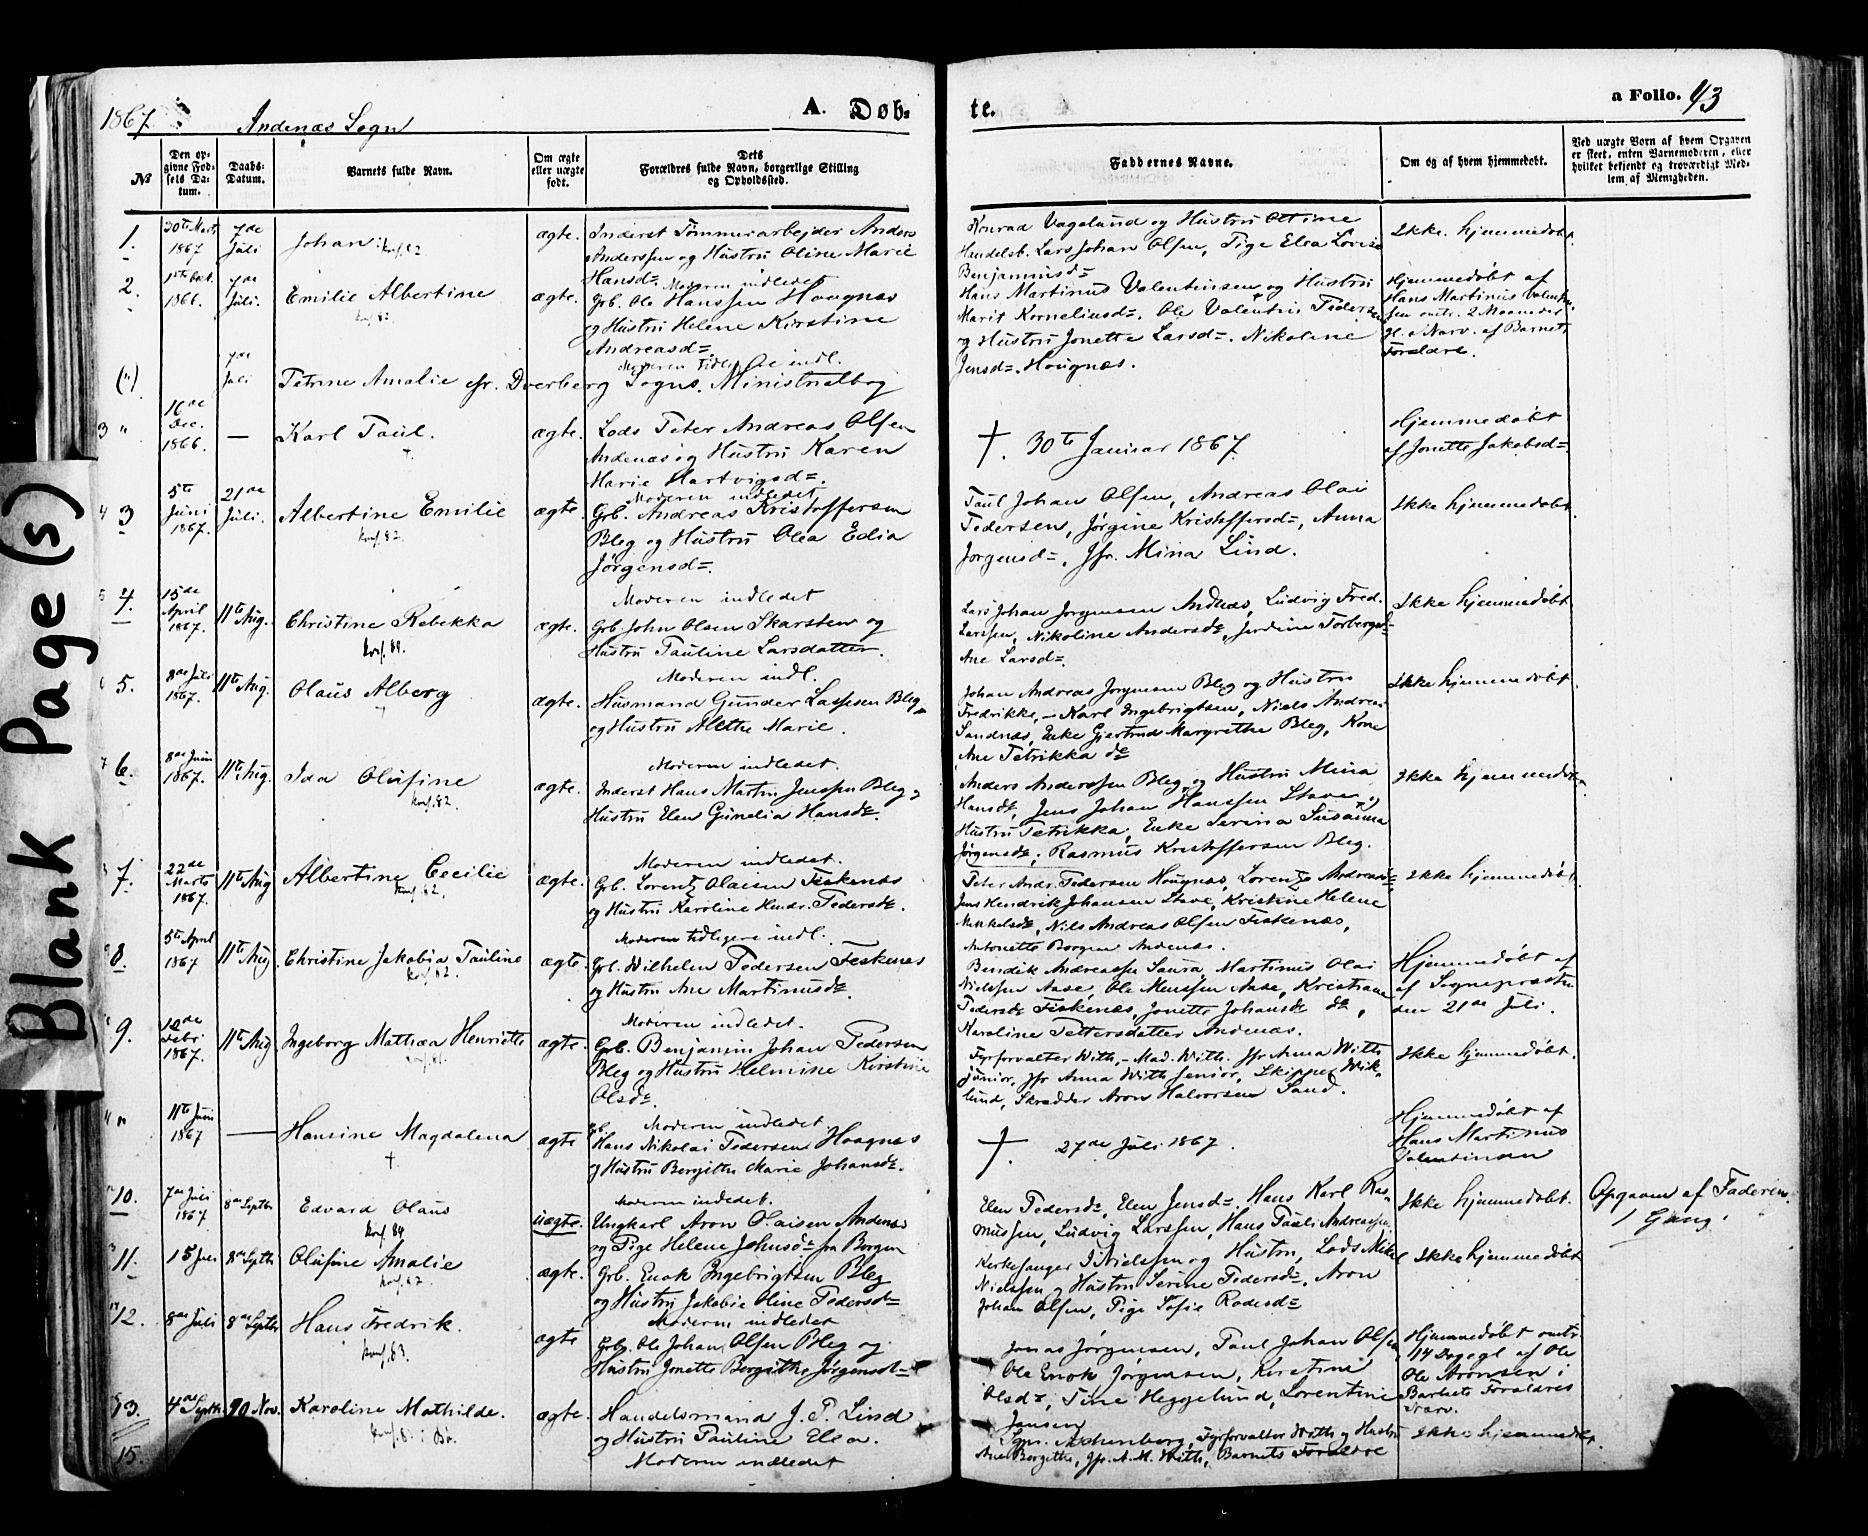 Blank Page(s)
1867
Andenæs Sogn
A. Døb-
te.
a Folio. 93
№
Den op-
givne Fød-
sels Da-
tum.
Daabs-
Datum.
Barnets fulde Navn.
Om ægte
eller uægte
født.
Dets
Forældres fulde Navn, borgerlige Stilling
og Opholdssted.
Faddernes Navne.
Om og af hvem hjemmedøbt.
Ved uægte Born af hvem Opgaven
er skeet, enten Barnemoderen, eller
hvilket bekjendt og troværdigt Med-
lem af Menigheden.
1. 30te Marts 1867 7de Juli Johan konf. 82 ægte.
Inderst Tømmerarbejder Anders
Anderssen og Hustru Oline Marie
Hansd=
Moderen indledet
Konrad Vagelund og Hustru Ottine
Handelsb. Lars Johan Olsen, Pige Elea Lovise
Benjaminsd=
Ikke hjemmedøbt.
2. 1866. 7de Juli. Emilie Albertine konf. 82 ægte.
Grb. Ole Hanssen Hougnæs
og Hustru Helene Kirstine
Andreasd=
Hans Martinus Valentinsen og Hustru
Marit Korneliusd=. Ole Valentin Pedersen
og Hustru Jonette Larsd=. Nikoline
Jensd=. Hougnæs.
Hjemmedøbt af
Hans Martinus Valentin-
sen omtr. 2 Maaneder
gl. i Nærv. af Barnets
Forældre.
(") 7de Juli Petrine Amalie cfr. Dverberg Sogns Ministrialbog
3 " 16de Dec. 1866. — Karl Paul. † ægte.
Lods Peter Andreas Olsen
Andenæs og Hustru Karen
Marie Hartvigsd=.
Moderen indledet
†. 30te Januar 1867.
Hjemmedøbt
af Jonette Jakobsd=
4 3 5te Juni 1867. 21de Juli. Albertine Emilie konf. 82. ægte.
Grb. Andreas Kristoffersen
Bleg og Hustru Olea Edia
Jørgensd=.
Paul Johan Olsen, Andreas Olai
Pedersen, Jørgine Kristoffersd=, Anna
Jørgensd=, Jfr. Mina Lind.
Ikke hjemmedøbt.
5 4. 15de April 1867. 11te Aug. Christine Rebekka konf. 84. ægte.
Moderen indledet
Grb John Olsen Skarsten og
Hustru Pauline Larsdatter.
Lars Johan Jørgensen Andnæs, Ludvig Fred.
Larssen, Nikoline Andersd=, Jordine Torbergsd=
Ane Larsd=.
Ikke hjemmedøbt
6 5. 8de Juli 1867. 11te Aug. Olaus Alberg † ægte.
Moderen indl.
Husmand Gunder Lassesen Bleg
og Hustru Mette Marie.
Johan Andreas Jørgensen Bleg og Hustru
Fredrikke, – Karl Ingebrigtsen, Niels Andreas
Sandnæs, Enke Gjertrud Margrethe Bleg, Kone
Ane Petrikka d=
Ikke hjemmedøbt.
7 6. 8de Juni 1867. 11te Aug. Ida Olufine konf. 82. ægte.
Moderen indledet.
Inderst Hans Martin Jenssen Bleg og
Hustru Elen Gunelia Hansd=.
Anders Anderssen Bleg og Hustru Mina
Hansd=, Jens Johan Hanssen Stave og
Hustru Petrikka, Enke Serina Susanna
Jørgensd=, Rasmus Kristoffersen Bleg.
Ikke hjemmedøbt.
7. 22de Marts 1867. 11te Aug Albertine Cecilie konf. 82. ægte.
Moderen indledet.
Grb. Lorentz Olaisen Fiskenæs
og Hustru Karoline Hendr. Pedersd=.
Peter Andr. Pedersen Hougnæs, Lorentze Andreasd=
Jens Hendrik Johansen Stave, Kristine Helene
Mikkelsd=, Nils Andreas Olsen Fiskenæs,
Antonette Borgen Andenæs.
Ikke hjemmedøbt.
8. 5te April 1867 11te Aug. Christine Jakobia Pauline konf. 82. ægte.
Moderen tidligere indl.
Grb. Wilhelm Pedersen Fiskenæs
og Hustru Ane Martinusd=.
Bendik Andreassen Saura, Martinus Olai
Nielssen Aase, Ole Monssen Aase, Kristiane
Pedersd= Fiskenæs, Jonette Johansd= d=,
Karoline Pettersdatter Andenæs.
Hjemmedøbt af
af Sognepresten
den 21de Juli.
9. 12de Febr. 1867. 11te Aug Ingeborg Mathea Henriette ægte.
Moderen indledet.
Grb. Benjamin Johan Pedersen
Bleg og Hustru Helmine Kirstine
Olsd=.
Fyrforvalter With, – Mad. With. Jfr Anna With
junior, Jfr Anna With senior, Skipper Wik-
lund, Skrædder Aron Halvorsen Sand.
Ikke hjemmedøbt.
" 11te Juni 1867 — Hansine Magdalena † ægte
Moderen indledet.
Hans Nikolai Pedersen Hougnæs
og Hustru Bergithe Marie Johansd=.
†. 27de Juli 1867.
Hjemmedøbt af
Hans Martinus
Valentinsen
10. 7de Juli 1867 8de Septbr Edvard Olaus konf. 84 uægte.
Moderen indledet.
Ungkarl Aron Olaisen Andenæs
og Pige Helene Johnsd= fra Borgen
Elen Pedersd=, Elen Jensd=, Hans Karl Ras-
mussen, Ludvig Larssen, Hans Pauli Andreassen.
Ikke hjemmedøbt.
Opgaven af Faderen.
1 Gang.
11. 15 Juli 8de Septbr Olufine Amalie konf. 82. ægte.
Grb. Enok Ingebrigtsen Bleg
og Hustru Jakobie Oline Pedersd=
Moderen indledet
Kirkesanger I Nielssen og Hustru, Lods Mikal
Nielssen og Hustru Serine Pedersd=, Aron
Johan Olsen, Pige Sofie Rodersd=
Ikke hjemmedøbt
12. 8de Juli 8de Septbr Hans Fredrik. konf. 83. ægte
Grb. Ole Johan Olsen Bleg og
Hustru Jonette Bergithe Jørgensd=
Jonas Jørgensen, Paul Johan Olsen
Ole Enok Jørgensen, Kirstine
Olsd=, Tine Heggelund, Lorentine
Jensen
Hjemmedøbt omtr.
14 Dage gl. af Ole
Ole Aronsen i
Barnets Forældres
Nærv.
13. 4de Septbr 10 Nov. Karoline Mathilde. ægte.
Handelsmand J. P. Lind
og Hustru Pauline Elea.
Moderen indledet
Fyrforvalter With og Hustru
Ane Bergithe, Jfr. A. M. With, Barnets Forældre
Ikke hjemmedøbt.
15.